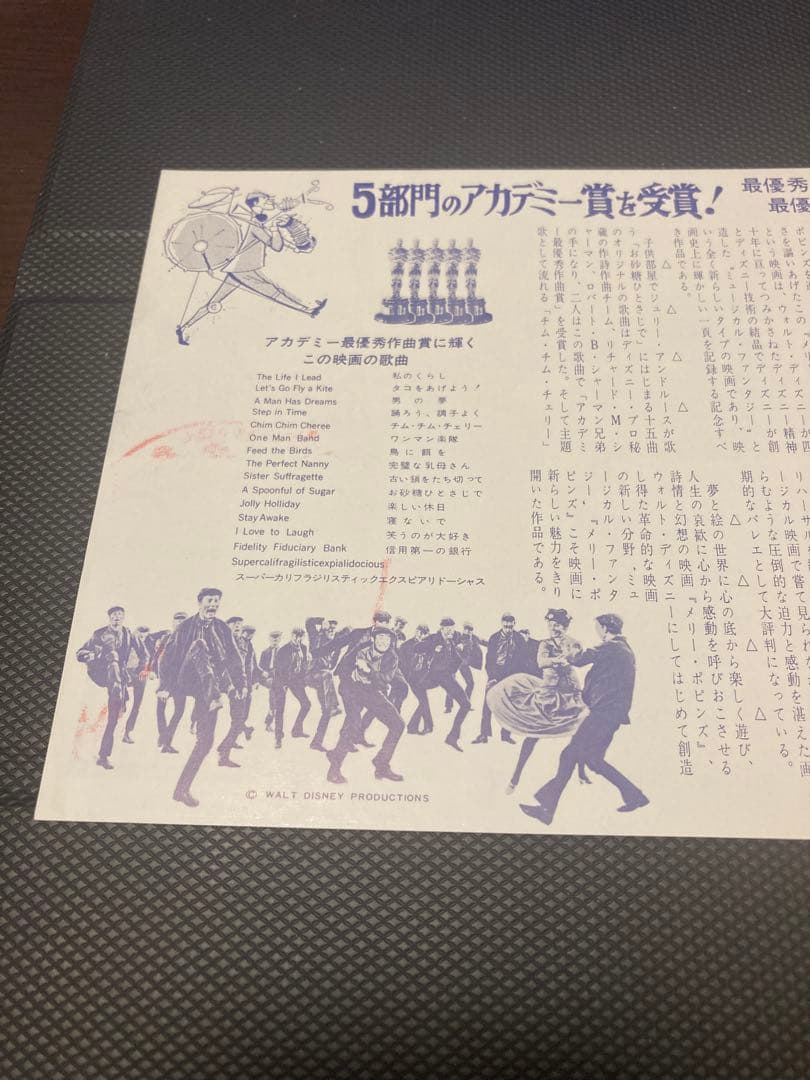 5部門のアカデミー賞を受賞!
最優秀
最優
アカデミー最優秀作曲賞に輝く
この映画の歌曲
The Life I Lead 私のくらし
Let's Go Fly a Kite タコをあげよう!
A Man Has Dreams 男の夢
Step in Time 踊ろう、調子よく
Chim Chim Cheree チム・チム・チェリー
One Man Band ワンマン楽隊
Feed the Birds 鳥に餌を
The Perfect Nanny 完璧な乳母さん
Sister Suffragette 古い鎖をたち切って
A Spoonful of Sugar お砂糖ひとさじで
Jolly Holliday 楽しい休日
Stay Awake 寝ないで
I Love to Laugh 笑うのが大好き
Fidelity Fiduciary Bank 信用第一の銀行
Supercalifragilisticexpialidocious
スーパーカリフラジリスティックエクスピアリドーシャス
さを謳いあげたこの『メリ
という映画は、ウォルト・ディズニ
十年に亘ってつみかさねたディズニー精神
とディズニー技術の結晶でディズニーが創
造した〝ミュージカル・ファンタジー〟と
いう全く新らしいタイプの映画であり、映
画史上に輝かしい一頁を記録する記念すべ
き作品である。
△ △ △
子供部屋でジュリー・アンドルースが歌
う「お砂糖ひとさじで」にはじまる十五曲
のオリジナルの歌曲はディズニー・プロ秘
蔵の作詩作曲チーム、リチャード・M・シ
ャーマン、ロバート・B・シャーマン兄弟
の手になり、二人はこの歌曲で「アカデミ
ー最優秀作曲賞」を受賞した。そして主題
歌として流れる「チム・チム・チェリー」
ージカル映画で嘗て見られな
らむような圧倒的な迫力と感動を湛えた画
期的なバレエとして大評判になっている。
△ △ △
夢と絵の世界に心の底から楽しく遊び、
人生の哀歓に心から感動を呼びおこさせる
詩情と幻想の映画『メリー・ポピンズ』、
ウォルト・ディズニーにしてはじめて創造
し得た革命的な映画
の新しい分野、ミュ
ージカル・ファンタ
ジー・『メリー・ポ
ピンズ』こそ映画に
新らしい魅力をきり
開いた作品である。
© WALT DISNEY PRODUCTIONS